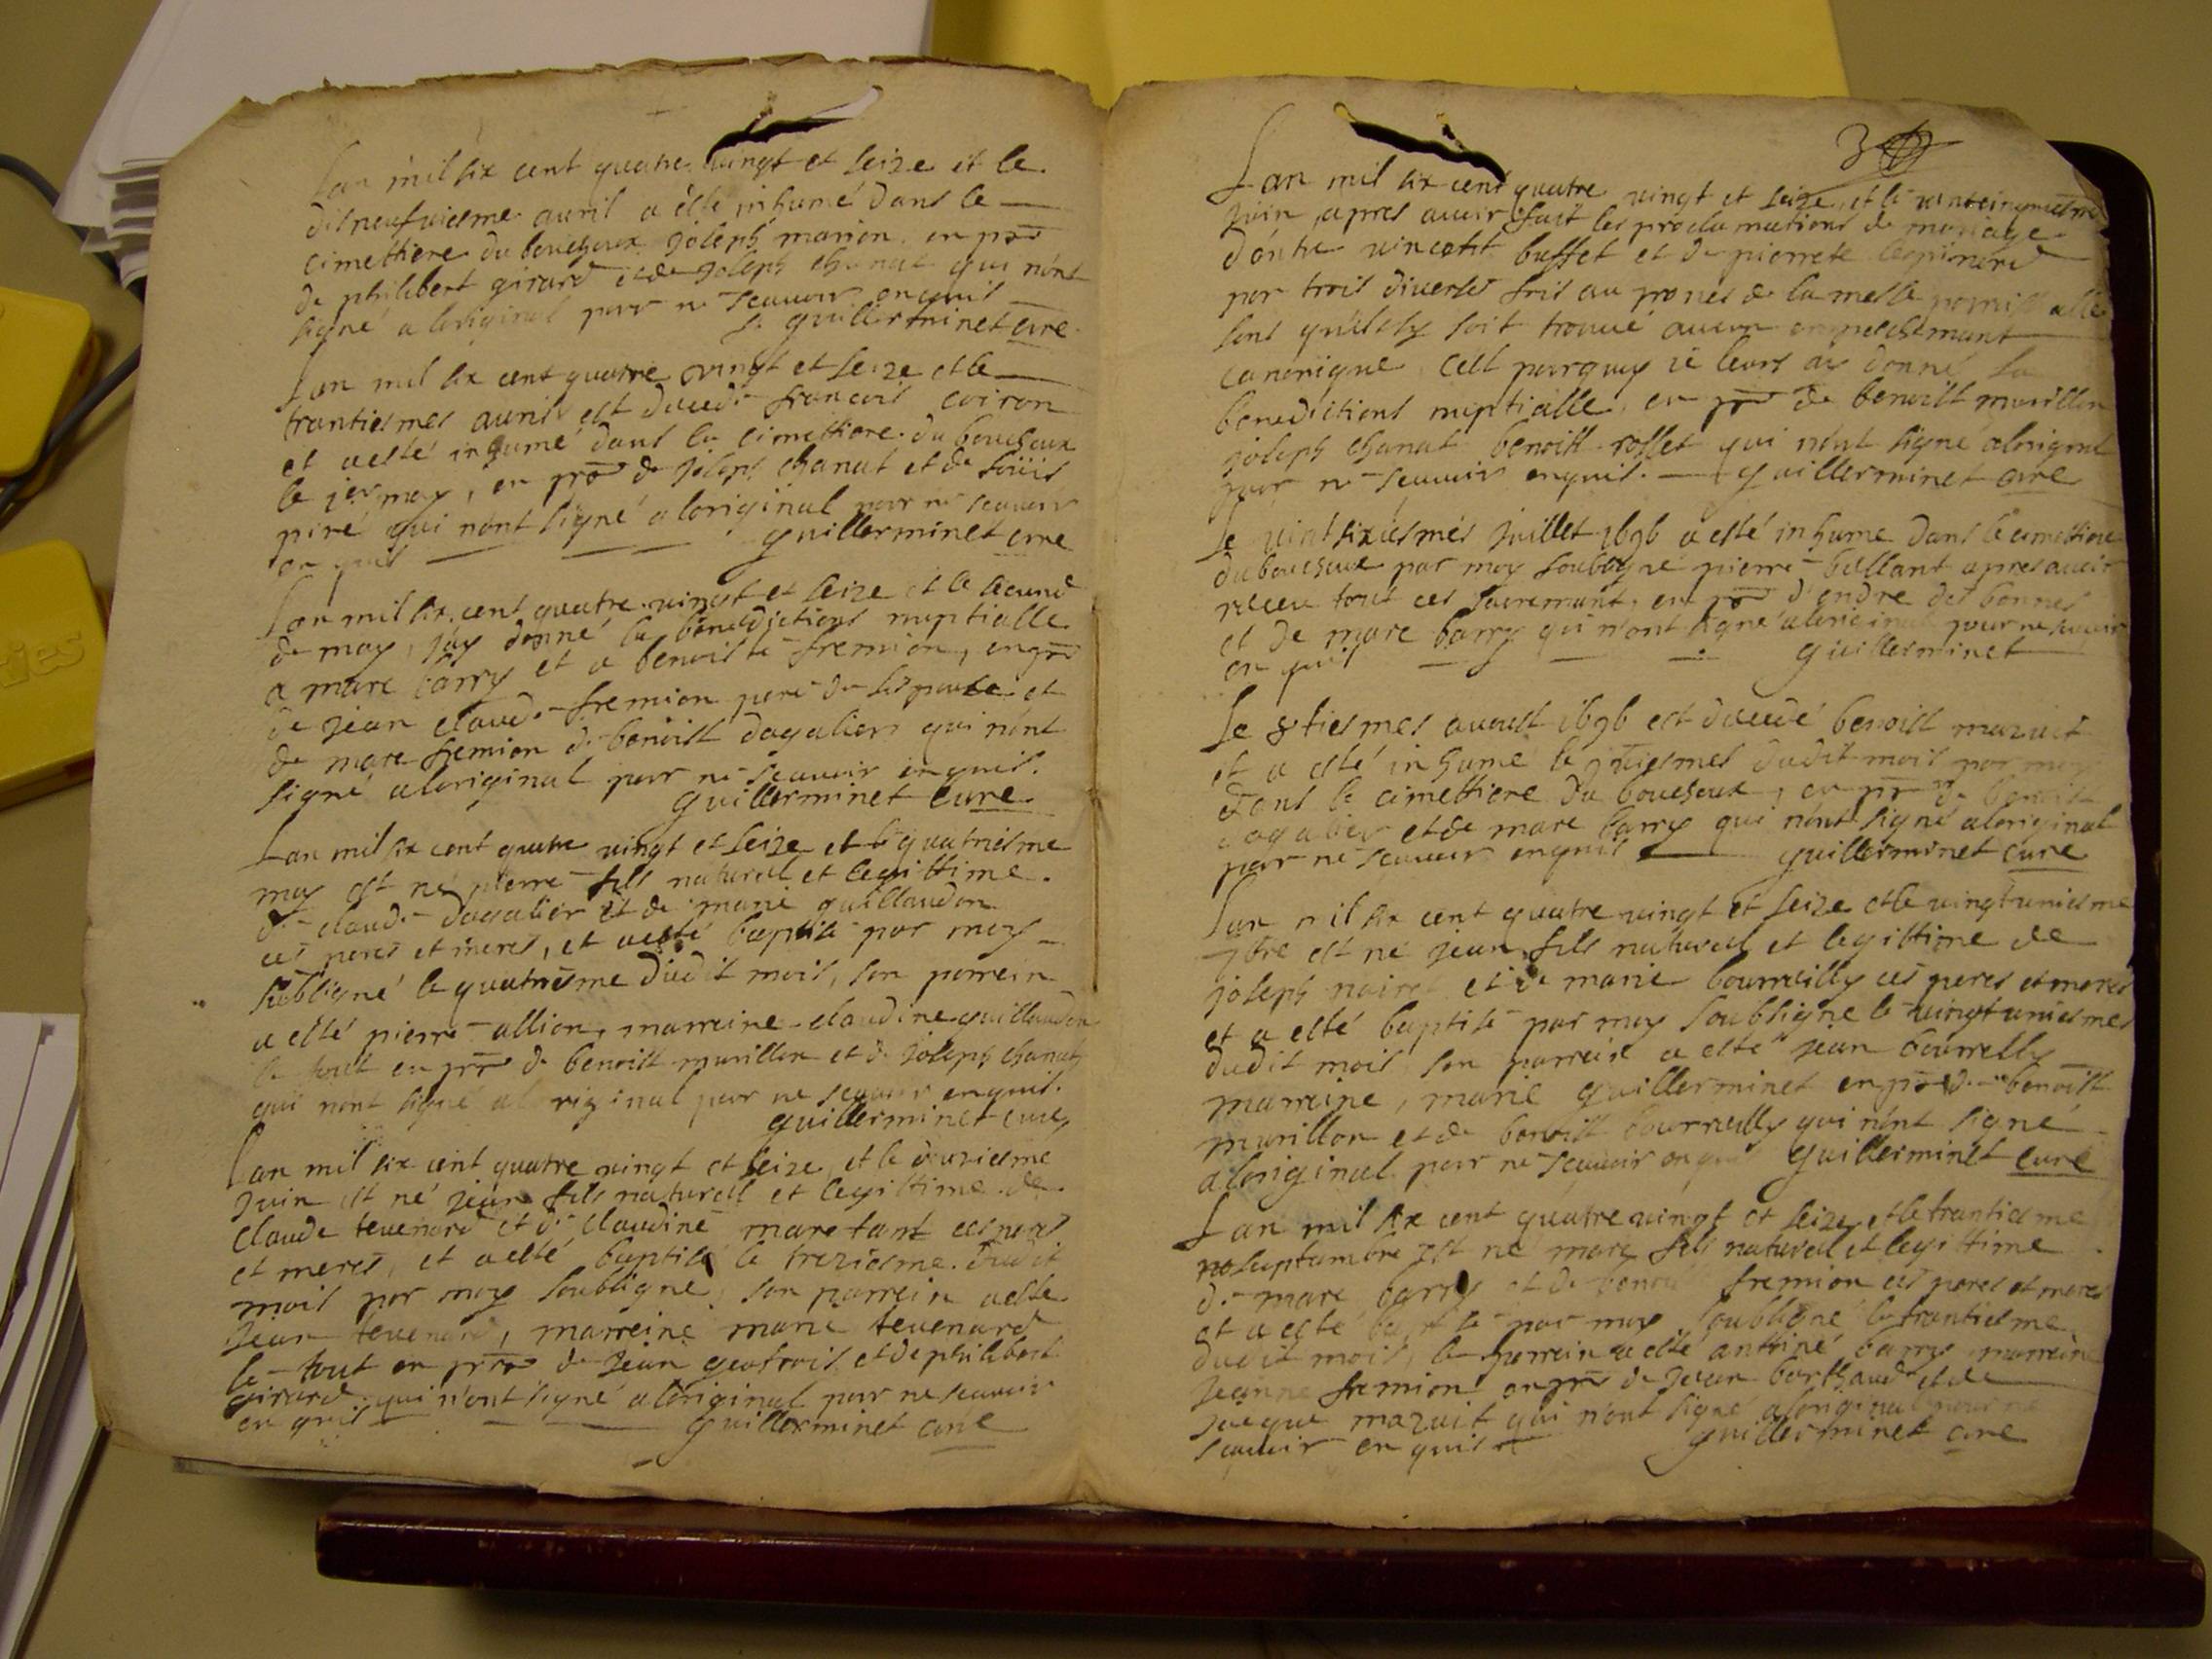 Lan mil six cent quatre vingt et seize et le
disneufviesme auril a esté inhumé dans le
cimettiere du bouchoux joseph marion en pre
de philibert girard et de joseph chanat qui n'ont
signé a loriginal pour ne scauoir enquis
guillerminet cure
Lan mil six cent quatre vingt et seize et le
trantiesmes auril est decedé francois coiron
et a esté inhumé dans le cimettiere du bouchoux
le jer may, en pre de joseph chanat et de
piné qui n'ont signé a loriginal pour ne scauoir
enquis guillerminet cure
Lan mil six cent quatre vingt et seize et le second
de may, jay donné la benedictions nuptialle
a marc barry et a benoiste fremion, en pre
de jean claude fremion pere de et
de marc fremion de benoist dagalier qui n'ont
signé a loriginal pour ne scauoir enquis.
guillerminet cure
Lan mil six cent quatre vingt et seize et le quatriesme
may est né pierre fils naturel et legittime
de claude dagalier et de marie guillaudon
ces peres et meres, et a esté baptisé par moy
soubsigné le quatriesme dudit mois, son parrein
a esté pierre allion, marreine claudine guillaudon
le tout en pre de benoist murillon et de joseph chanat
qui n'ont signé a loriginal pour ne scauoir enquis.
guillerminet cure
Lan mil six cent quatre vingt et seize, et le douziesme
juin est né jean fils naturel et legittime de
claude tevenard et de claudine ces peres
et meres, et a esté baptisé le treziesme dudit
mois par moy soubsigné, son parrein a esté
jean tevenard, marreine marie tevenard
le tout en pre de jean geofrois et de philibert
girard qui n'ont signé a loriginal pour ne scauoir
enquis guillerminet cure
3
Lan mil six cent quatre vingt et seize, et le
juin, apres auoir fait les proclamations de mariage
d'entre vincent buffet et de pierrete
par trois diverses fois au prones de la messe
sans qu'il sy soit trouué aucun enpeschemant
canonique, cest pourquoy ie leurs ay donné la
benedictions nuptialle, en pre de benoist murillon
joseph chanat benoist rosset qui n'ont signé a loriginal
pour ne scauoir enquis. guillerminet cure
Le vint sixiesmes juillet 1696 a esté inhume dans le cimettiere
du bouchoux par moy soubsigné pierre ballant apres auoir
receu tout ces sacremant, en pre d'andre des bonnes
et de marc barry qui n'ont signé a loriginal pour ne scauoir
enquis guillerminet
Le aoust 1696 est decedé benoist mazuit
et a esté inhumé le dudit mois par moy
dans le cimettiere du bouchoux, en pre de benoist
dagalier et de marc barry qui n'ont signé a loriginal
pour ne scauoir enquis guillerminet cure
Lan mil six cent quatre vingt et seize et le vingtuniesme
7bre est né jean fils naturel et legittime de
joseph et de marie bourreilly ces peres et meres
et a esté baptisé par moy soubsigné le vingtuniesmes
dudit mois son parrein a esté jean bourrelly
marreine, marie guillerminet en pre de benoist
murillon et de benoist bourreilly qui n'ont signé
a loriginal pour ne scauoir enquis guillerminet curé
Lan mil six cent quatre vingt et seize, et le trantiesme
septambre est né marc fils naturel et legittime
de marc barry et de benoiste fremion ces peres et meres
et a esté baptisé par moy soubsigné le trantiesme
dudit mois, le parrein a esté anttiné barry marreine
jeanne fremion en pre de jean barthaud et de
jacque mazuit qui n'ont signé a loriginal pour ne
scauoir enquis guillerminet cure